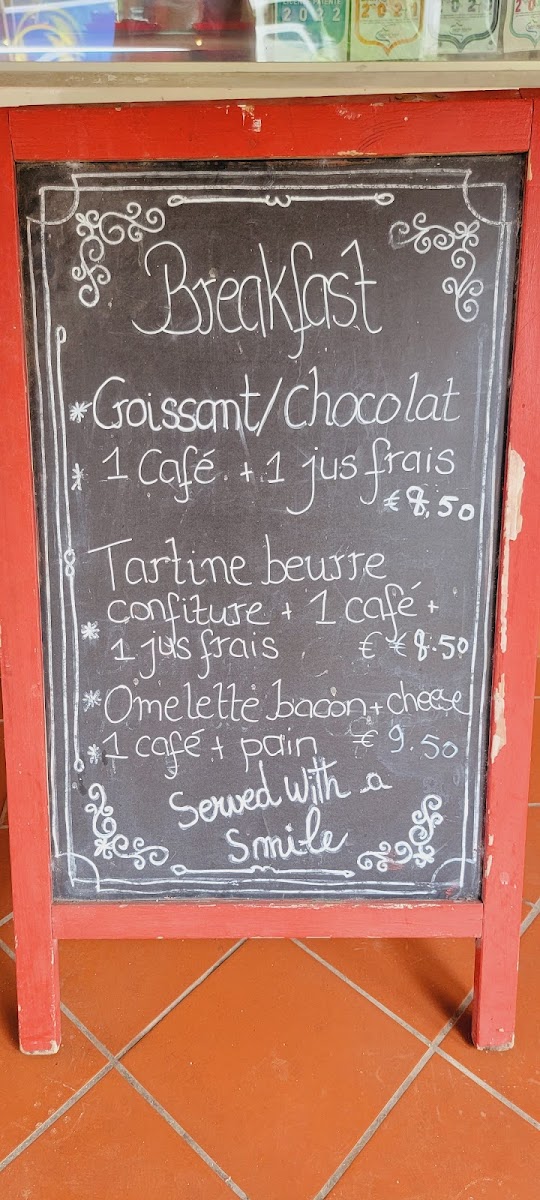 2022
2021
2020
202
Breakfast
* Croissant/chocolat
* 1 Café + 1 jus frais
€ 8.50
Tartine beurre
confiture + 1 café +
* 1 jus frais € € 8.50
* Omelette bacon + cheese
* 1 café + pain € 9.50
Served with a
smile